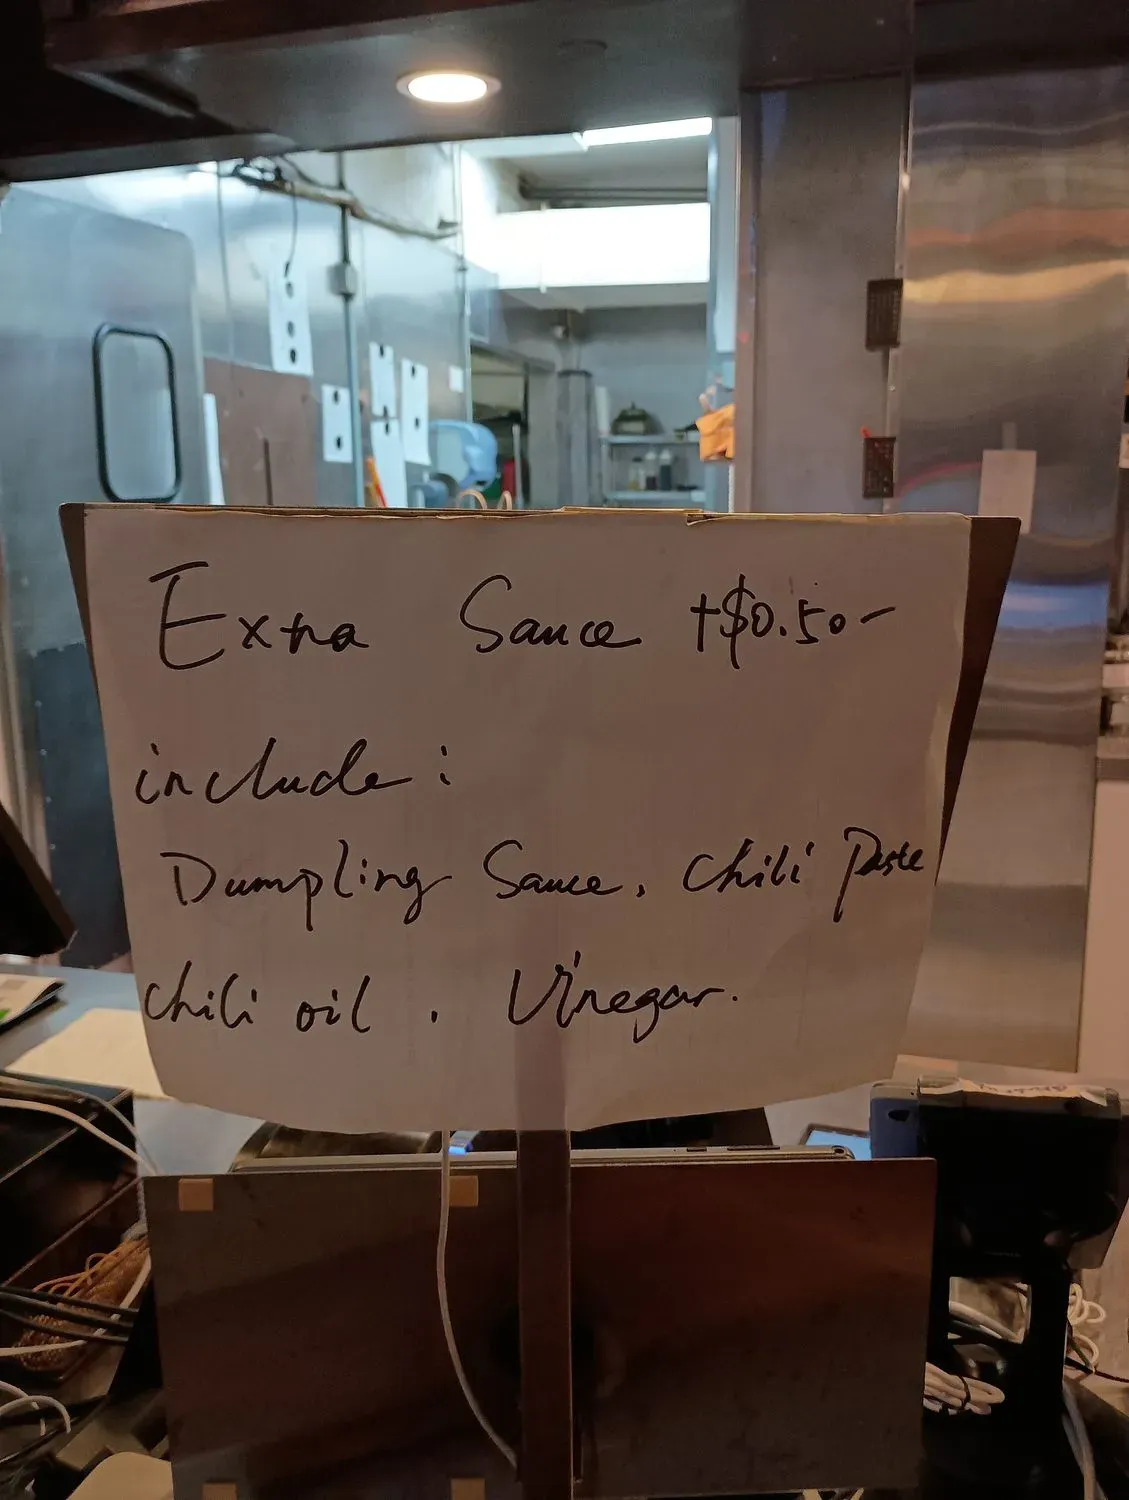 Extra Sauce +$0.50-
include:
Dumpling Sauce, Chili Paste
Chili oil, Vinegar.